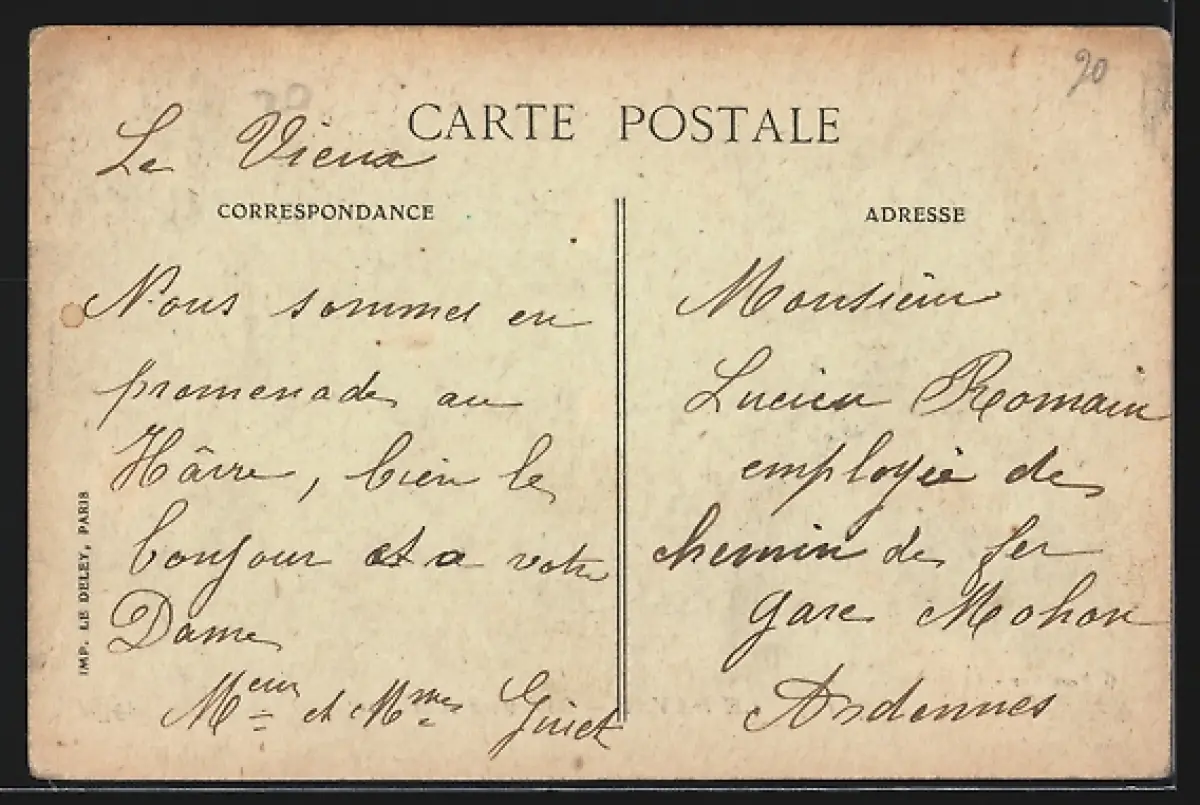 20
CARTE POSTALE
Le Vieux
CORRESPONDANCE
Nous sommes en
promenade au
Hâvre, bien le
bonjour et a votre
Dame
Meur et Mme
IMP. LE DELEY, PARIS
ADRESSE
Monsieur
Lucien Romain
employée de
chemin de fer
gare Mohon
Ardennes